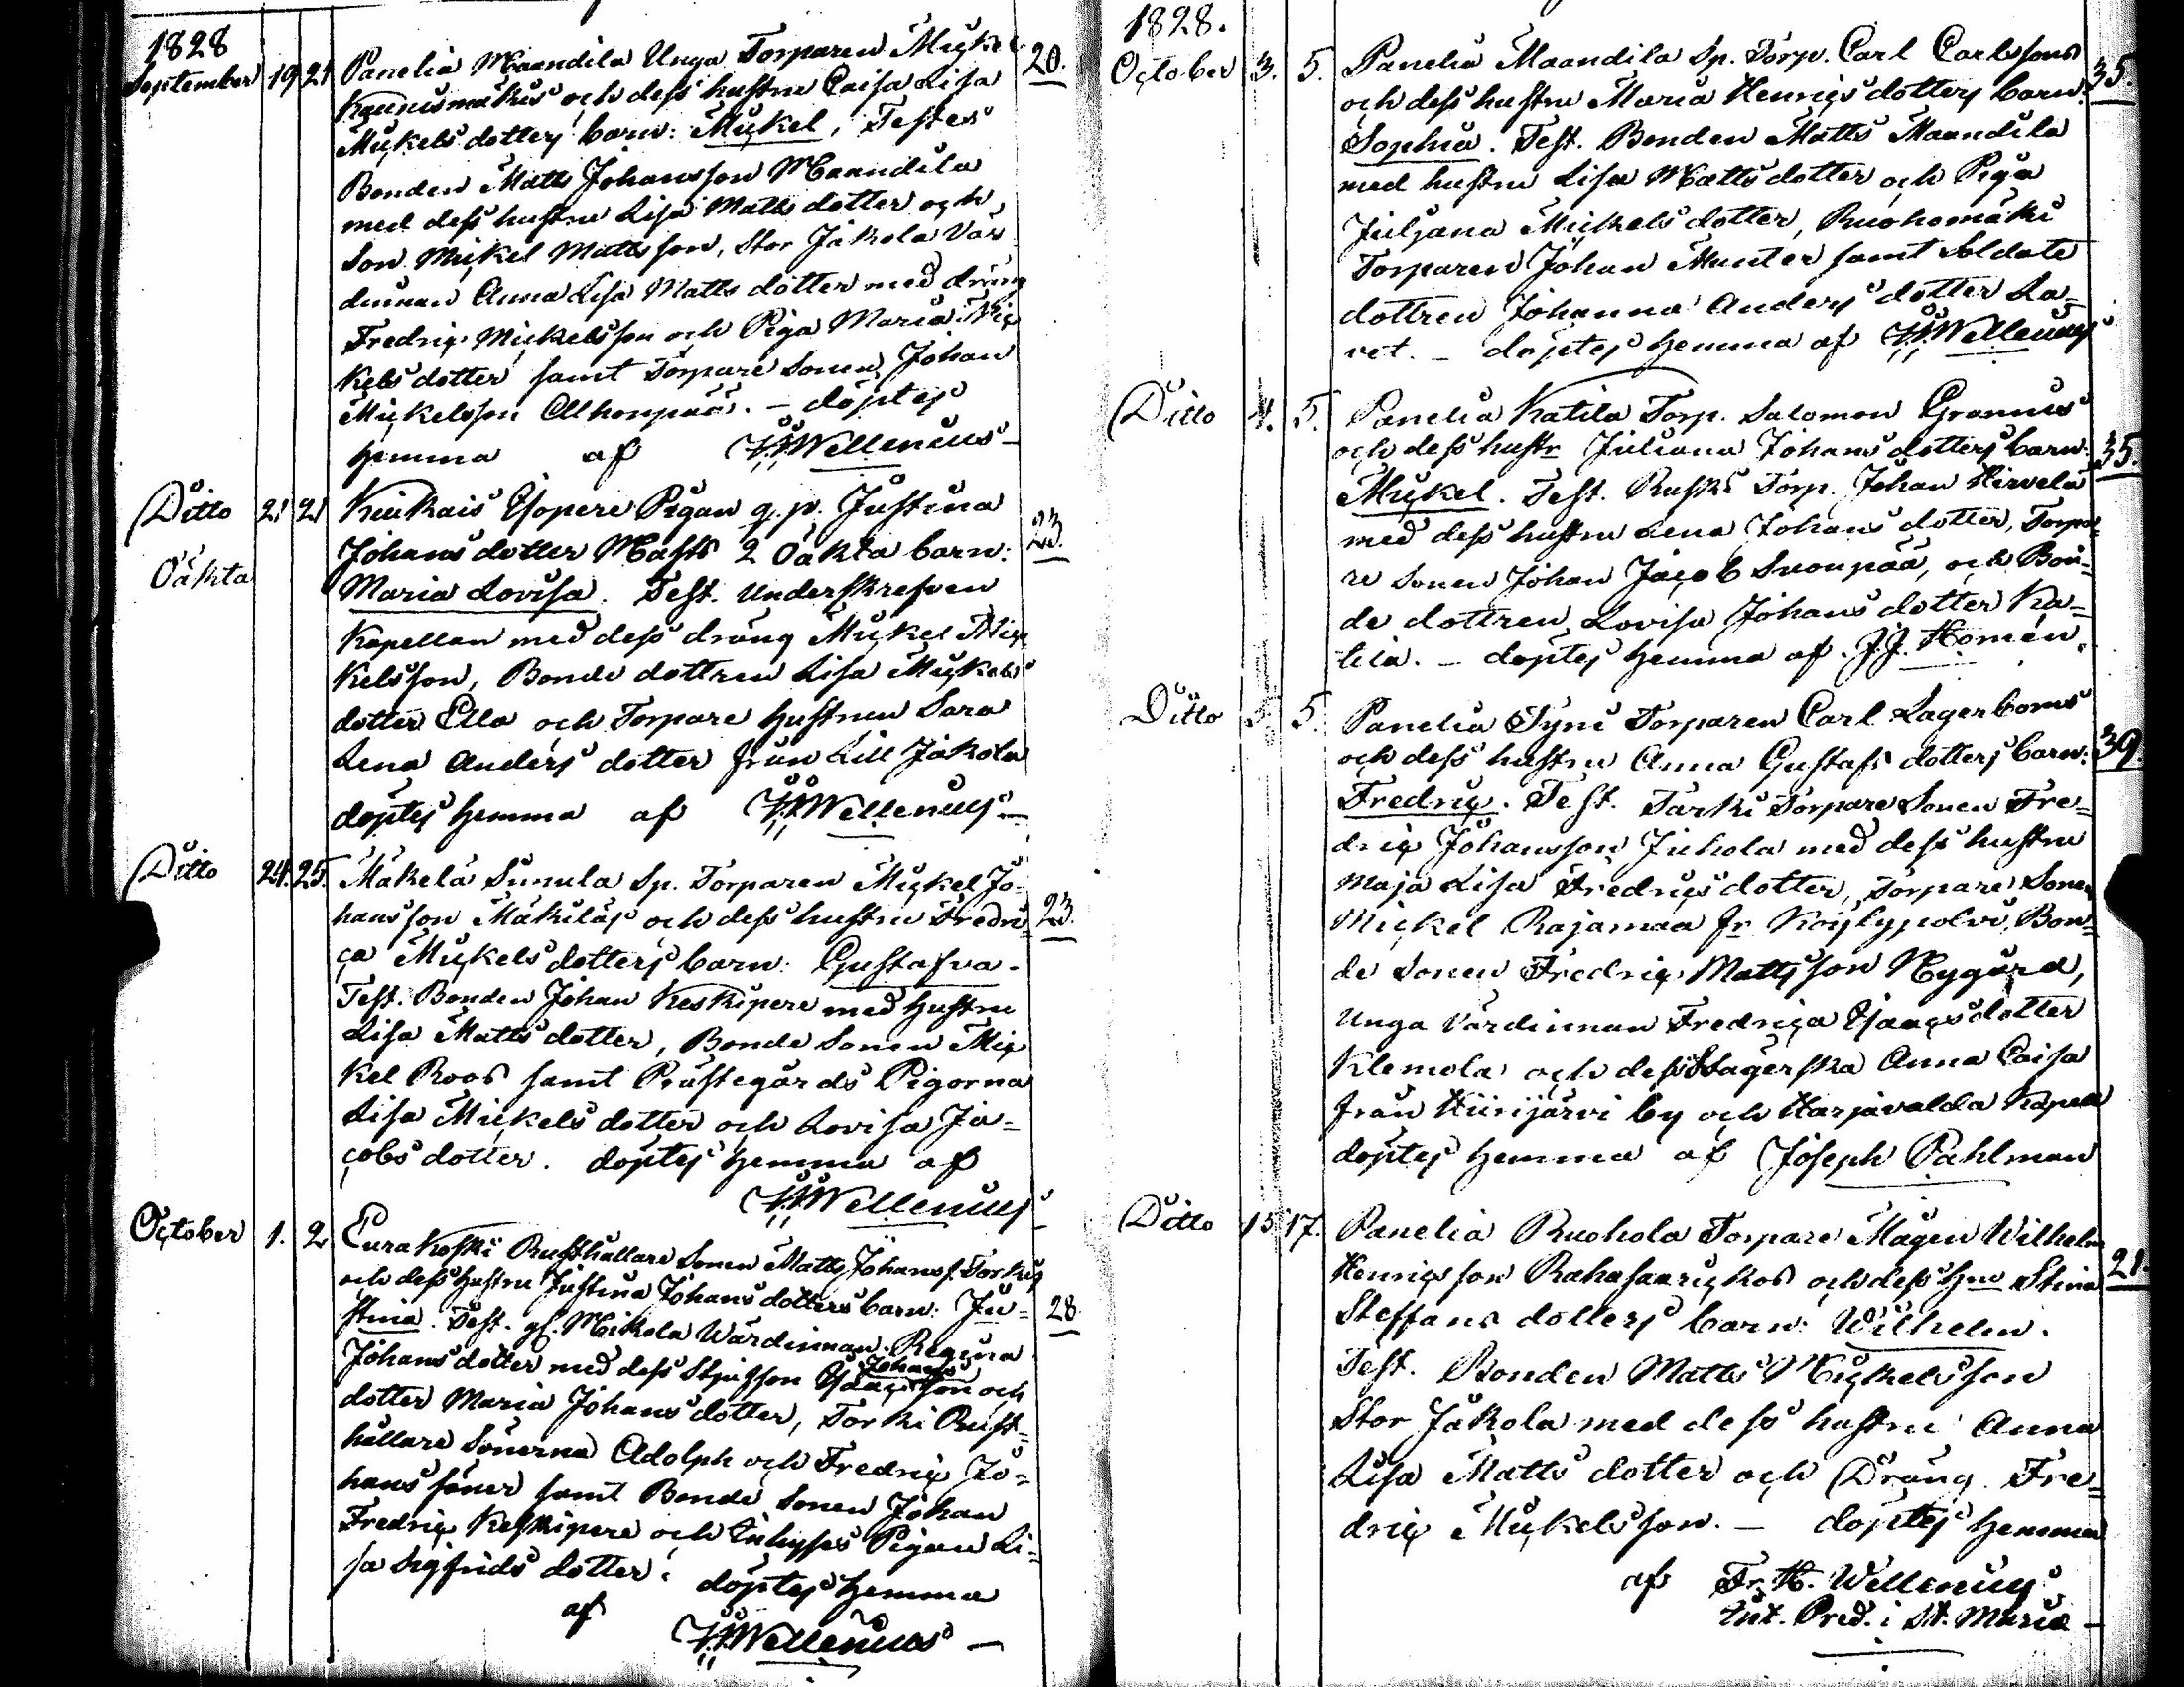 1828
September 19 21 Panelia Maandila Unga Torparen Mickel 20.
Kaunismäkis och dess hustru Caisa Lisa
Mickels dotters barn: Mickel, Testes
Bonden Matts Johansson Maandila
med dess hustru Lisa Matts dotter och
Son Mickel Mattsson, Stor Jakola Vär
dinnan Anna Lisa Matts dotter med dräng
Fredric Mickelsson och Piga Maria Mic
kels dotter samt Torpare Sonen Johan
Mickelsson Alhonpää. – döptes
hemma af Wellenius –
Ditto 21 21 Kiukais Isopere Pigan q. p. Justina 23.
Johans dotter Masts 2 Oäkta barn:
Oäkta
Maria Lovisa. Test. Underskrefven
Kapellan med dess dräng Mickel Mic
kelsson, Bonde dottren Lisa Mickels
dotter Ella och Torpare hustrun Sara
Lena Anders dotter från Lill Jakola
döptes hemma af Wellenius –
Ditto 24. 25. Mäkelä Sunula Sp. Torparen Mickel Jo-
hansson Mäkiläs och dess hustru Fredri= 23.
ca Mickels dotters barn: Gustafva.
Test. Bonden Johan Keskipere med hustru
Lisa Matts dotter, Bonde Sonen Mic
kel Roos samt Prästegårds Pigorna
Lisa Mickels dotter och Lovisa Ja=
cobs dotter. döptes hemma af
Wellenius
October 1. 2 Eura Koski Rusthållare Sonen Matts Johanss. Torkis
och dess hustru Justina Johans dotters barn: Ju= 28
stina. Test. gl. Mikola Wärdinnan Regina
Johans dotter med dess Stjufson Johans son och
dotter Maria Johans dotter, Torki Rust=
hållare Sönerna Adolph och Fredric Jo=
hans söner samt Bonde Sonen Johan
Fredric Keskipere och Inhyses Pigan Li=
sa Sigfrids dotter. döptes hemma
af
Wellenius –
1828.
October 3. 5. Panelia Maandila Sp. Torp. Carl Carlssons 35.
och dess hustru Maria Henrics dotters barn:
Sophia. Test. Bonden Matts Maandila
med hustru Lisa Matts dotter och Piga
Juljana Mickels dotter, Ruohomäki
Torparen Johan Munter samt Soldate
dottren Johanna Anders dotter La=
vet. – döptes hemma af Wellenius
Ditto 4. 5. Panelia Katila Torp. Salomon Grannus
och dess hustr Juliana Johans dotters barn: 35.
Mickel. Test. Ruski Torp. Johan Hirvelä
med dess hustru Lena Johans dotter, Torpa=
re Sonen Johan Jacob Suonpää, och Bon=
de dottren Lovisa Johans dotter Ka=
tila. – döptes hemma af J. J. Homén.
Ditto 5. 5. Panelia Tyni Torparen Carl Lagerboms
och dess hustru Anna Gustafs dotters barn: 39.
Fredric. Test. Tarki Torpare Sonen Fre=
dric Johansson Juhola med dess hustru
Maja Lisa Fredrics dotter, Torpare Sonen
Mickel Rajamaa fr Köylypolvi, Bon=
de Sonen Fredric Mattsson Nygård,
Unga Värdinnan Fredrica Isaacs dotter
Klemola och dess Slägerska Anna Caisa
från Hiirijärvi by och Harjavalda Kapell
döptes hemma af Joseph Pahlman
Ditto 15 17. Panelia Ruohola Torpare Mågen Wilhelm
Henricsson Rahasaarickos och dess Hru Stina 21.
Steffans dotters barn: Wilhelm.
Test. Bonden Matts Mickelsson
Stor Jakola med dess hustru Anna
Lisa Matts dotter och Dräng Fre=
dric Mickelsson. – döptes hemma
af Fr. H. Wellenius
Ext. Pred. i St. Marie –